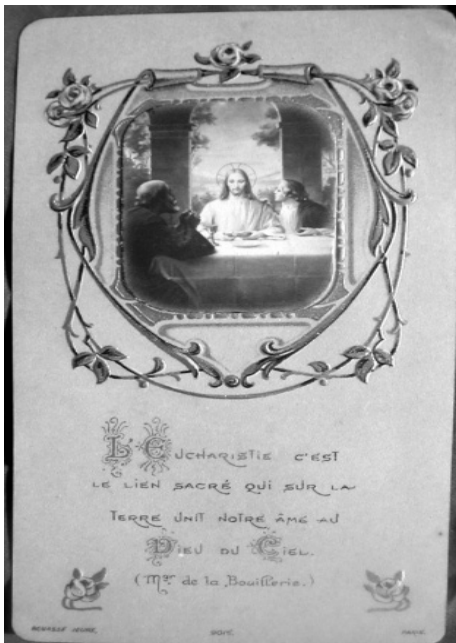 L'EUCHARISTIE C'EST
LE LIEN SACRÉ QUI SUR LA
TERRE UNIT NOTRE ÂME AU
DIEU DU CIEL.
(Mgr de la Bouillerie.)
JEUNE,
PARIS.